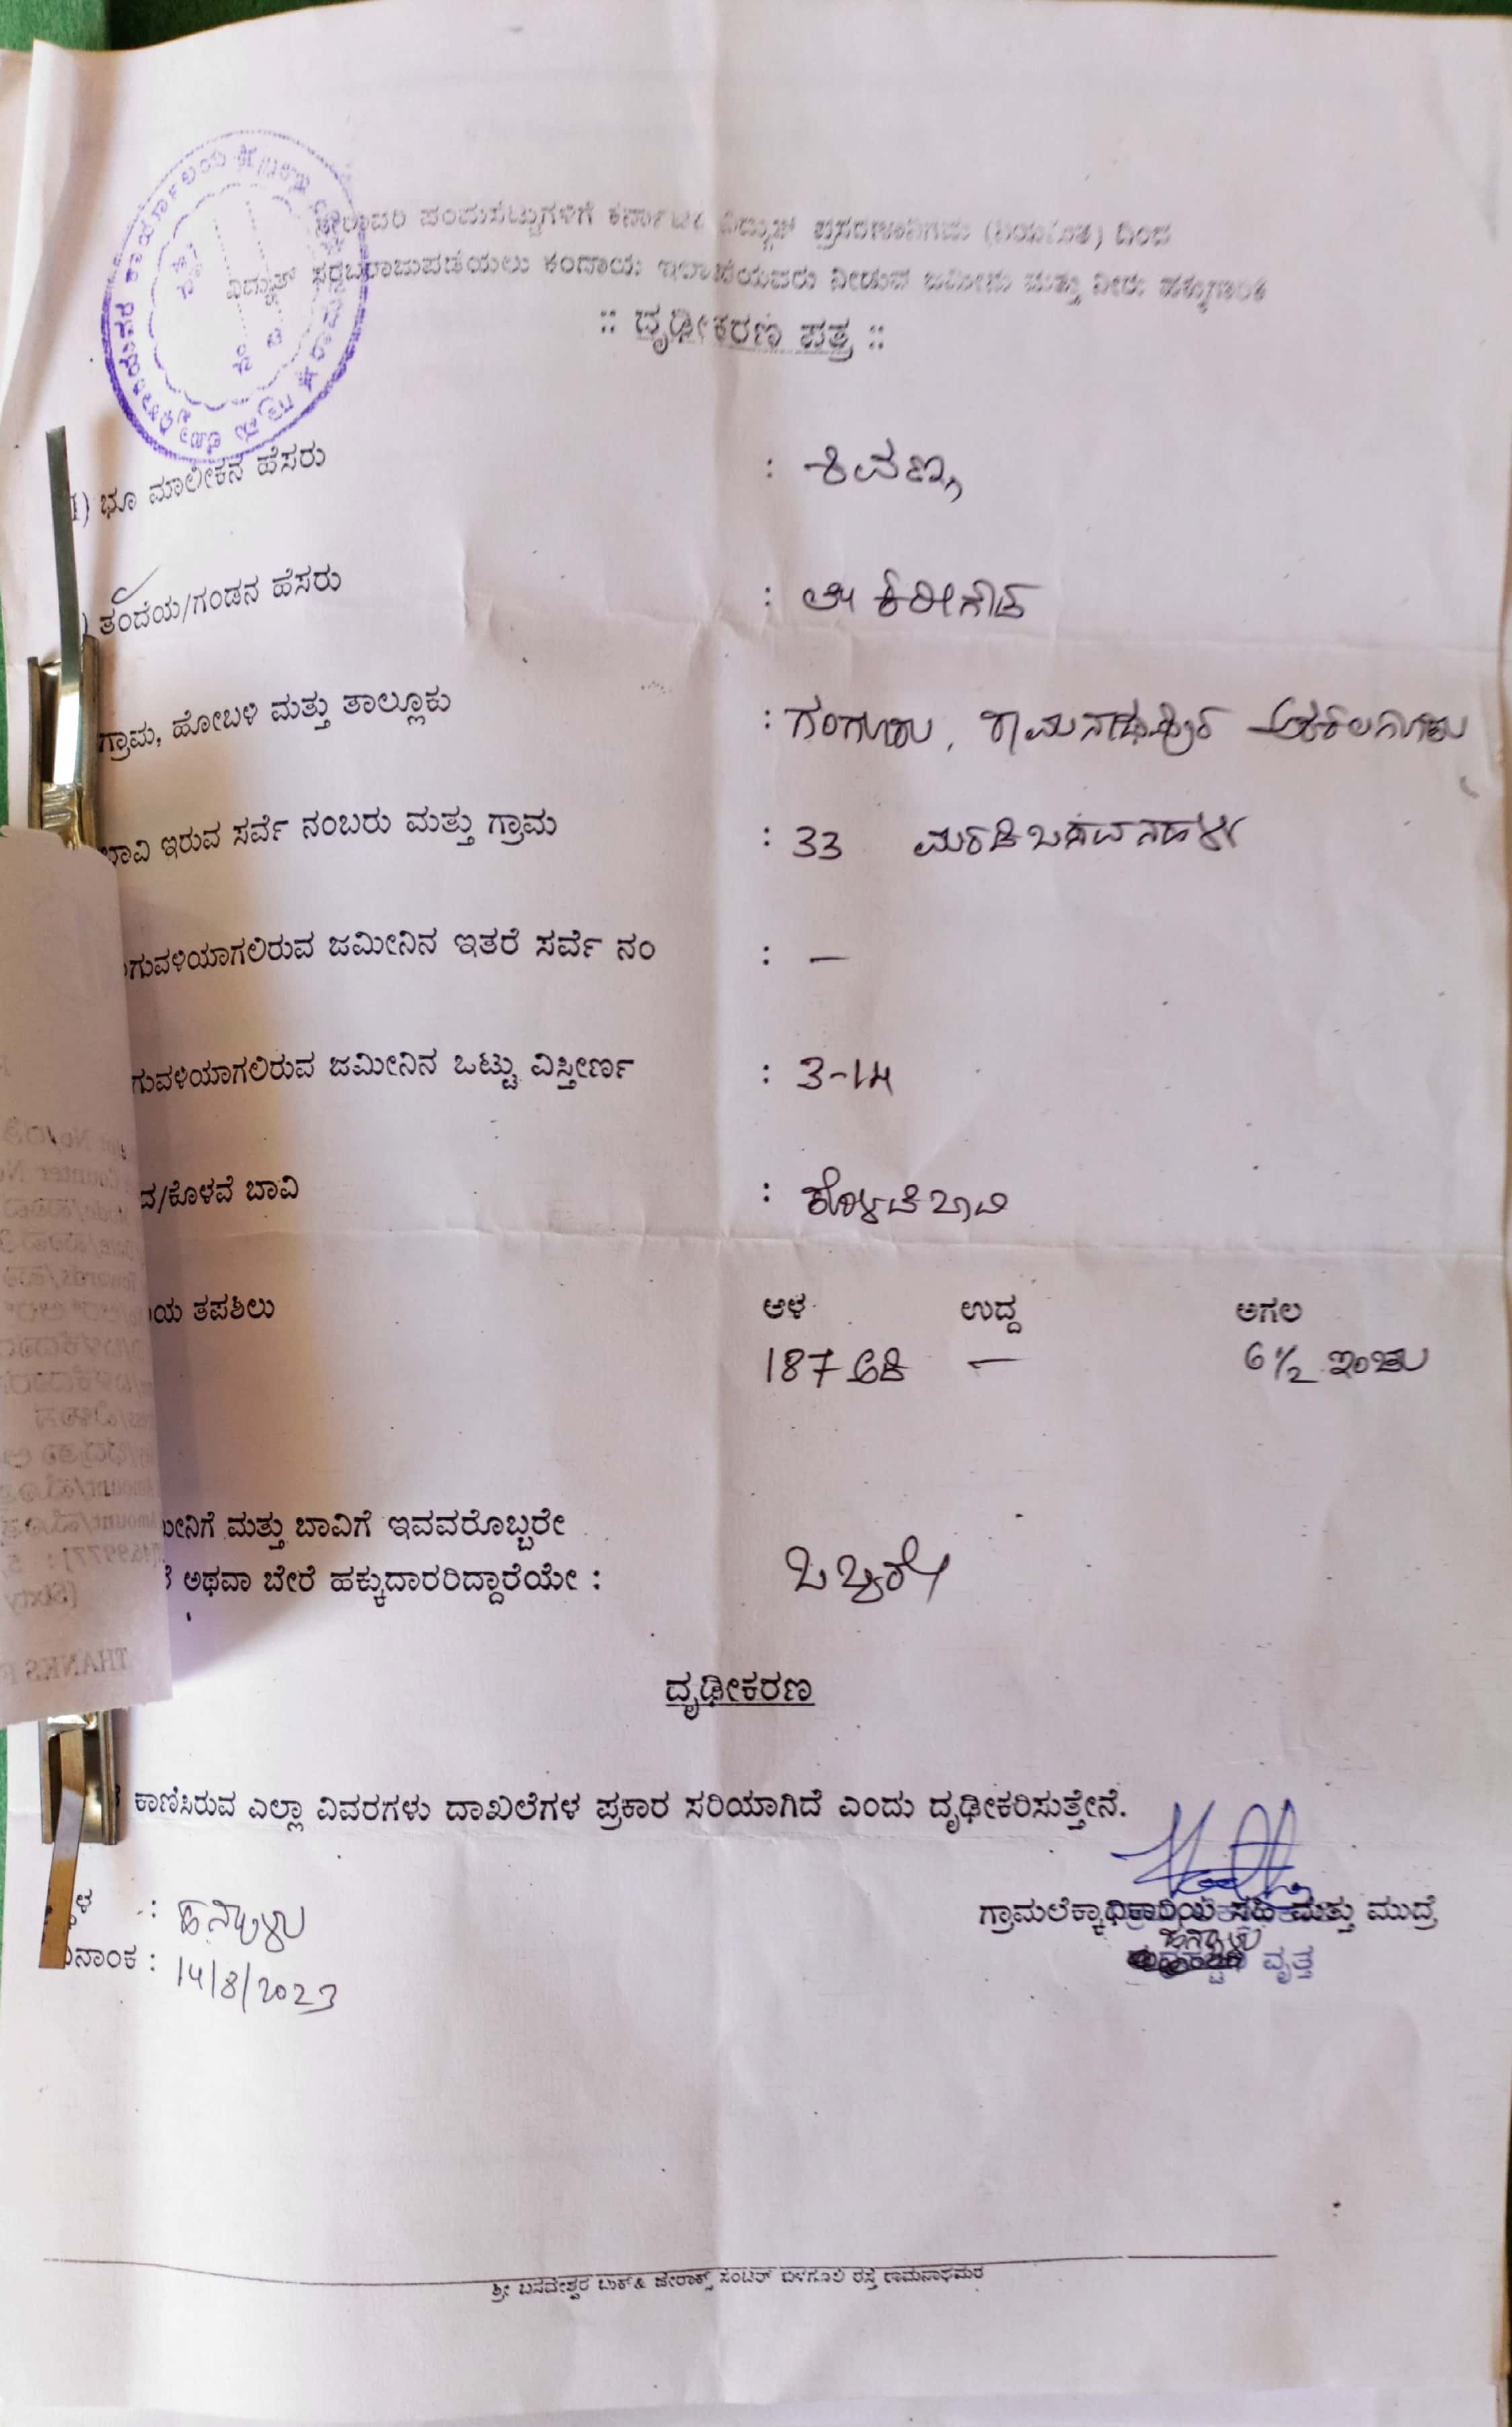 ನೀರಾವರಿ ಪಂಪುಸೆಟ್ಟುಗಳಿಗೆ ಕರ್ನಾಟಕ ವಿದ್ಯುತ್ ಪ್ರಸರಣ ನಿಗಮ (ನಿಯಮಿತ) ದಿಂದ
ವಿದ್ಯುತ್ ಸರಬರಾಜುಪಡೆಯಲು ಕಂದಾಯ ಇಲಾಖೆಯವರು ನೀಡುವ ಜಮೀನು ಮತ್ತು ನೀರು ಹಕ್ಕುಗಾರಿಕೆ
:: ದೃಢೀಕರಣ ಪತ್ರ ::
1) ಭೂ ಮಾಲೀಕನ ಹೆಸರು : ಶಿವಣ್ಣ
) ತಂದೆಯ/ಗಂಡನ ಹೆಸರು : ಕರೀಗೌಡ
ಗ್ರಾಮ, ಹೋಬಳಿ ಮತ್ತು ತಾಲ್ಲೂಕು : ಗಂಗೂರು, ರಾಮನಾಥಪುರ ಅರಕಲಗೂಡು
ಬಾವಿ ಇರುವ ಸರ್ವೆ ನಂಬರು ಮತ್ತು ಗ್ರಾಮ : 33
ಗುವಳಿಯಾಗಲಿರುವ ಜಮೀನಿನ ಇತರೆ ಸರ್ವೆ ನಂ : —
ಗುವಳಿಯಾಗಲಿರುವ ಜಮೀನಿನ ಒಟ್ಟು ವಿಸ್ತೀರ್ಣ : 3-14
ದ/ಕೊಳವೆ ಬಾವಿ : ಕೊಳವೆ ಬಾವಿ
ಯ ತಪಶಿಲು ಆಳ ಉದ್ದ ಅಗಲ
187 ಅಡಿ — 6 1/2 ಇಂಚು
ಮೀನಿಗೆ ಮತ್ತು ಬಾವಿಗೆ ಇವವರೊಬ್ಬರೇ
ಅಥವಾ ಬೇರೆ ಹಕ್ಕುದಾರರಿದ್ದಾರೆಯೇ : ಒಬ್ಬರೇ
ದೃಢೀಕರಣ
ಕಾಣಿಸಿರುವ ಎಲ್ಲಾ ವಿವರಗಳು ದಾಖಲೆಗಳ ಪ್ರಕಾರ ಸರಿಯಾಗಿದೆ ಎಂದು ದೃಢೀಕರಿಸುತ್ತೇನೆ.
ಳ : ಹನ್ಯಾಳು
ನಾಂಕ : 14/8/2023
ಗ್ರಾಮಲೆಕ್ಕಾಧಿಕಾರಿಯ ಸಹಿ ಮತ್ತು ಮುದ್ರೆ
ಹನ್ಯಾಳು
ವೃತ್ತ
ಶ್ರೀ ಬಸವೇಶ್ವರ ಬುಕ್ & ಜೇರಾಕ್ಸ್ ಸೆಂಟರ್ ರಸ್ತೆ ರಾಮನಾಥಪುರ